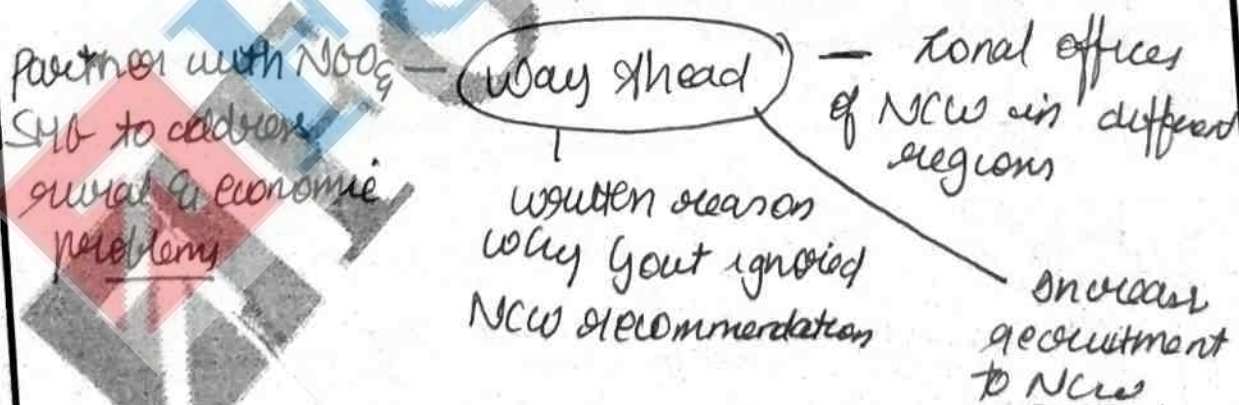 Partner with NGOs &
SHG to address
rural & economic
problems
Way Ahead
– zonal offices
of NCW in different
regions
written reason
why Govt ignored
NCW recommendation
Increase
recruitment
to NCW